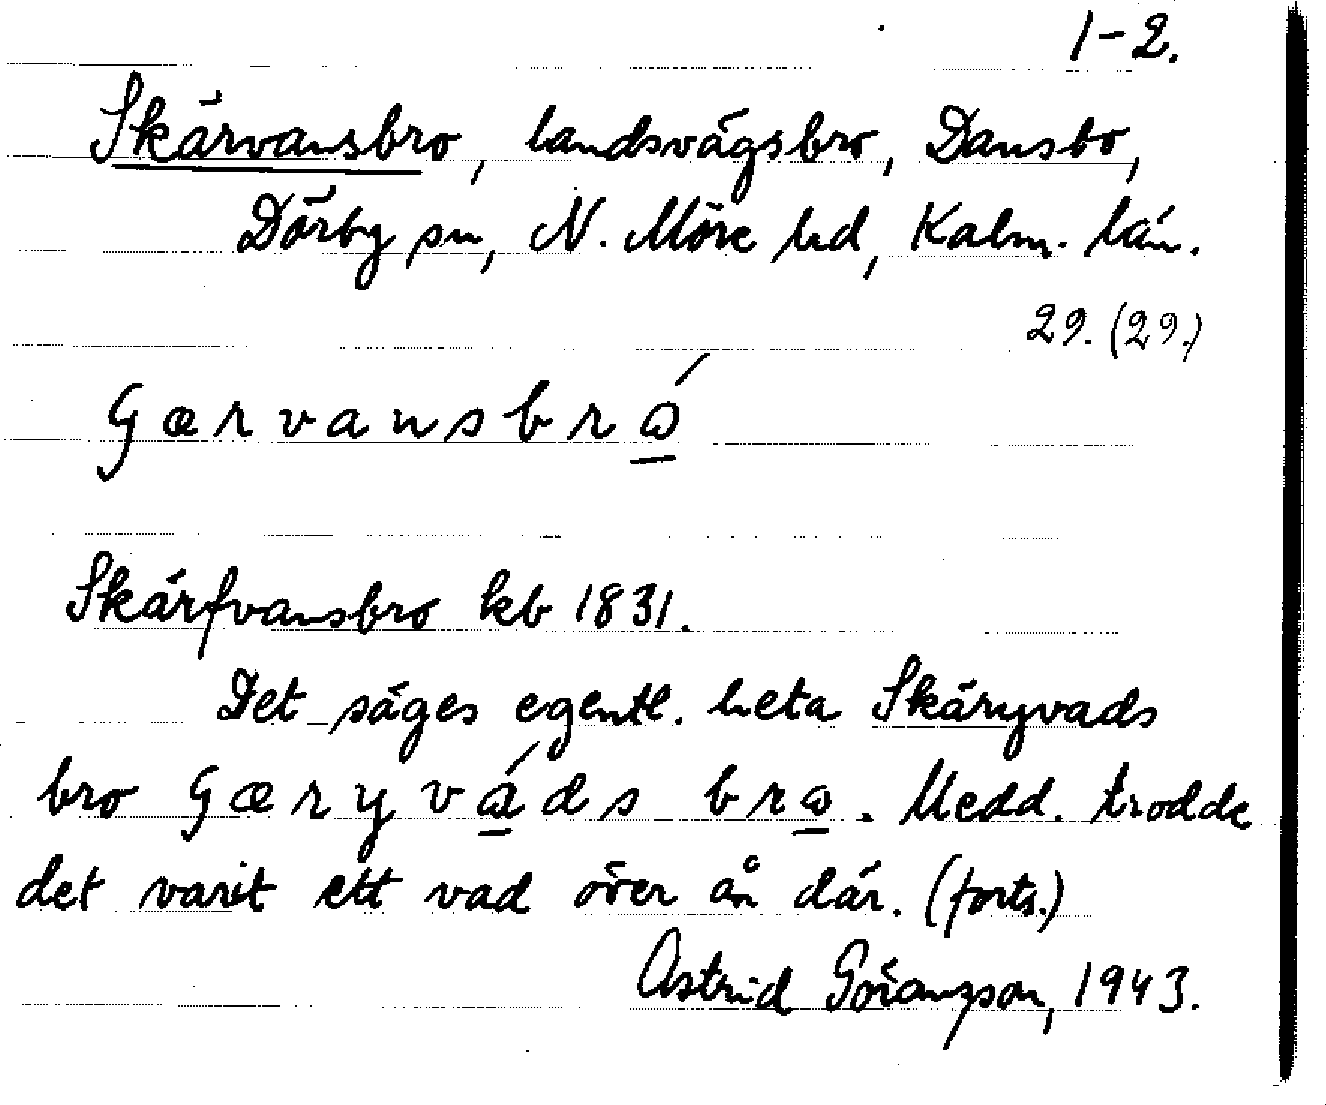 1-2.
Skärvansbro, landsvägsbro, Dansbo,
Dörby sn, N. Möre hd, Kalm. län.
29. (29.)
Gærvansbró
Skärfvansbro kb 1831.
Det säges egentl. heta Skäryvads
bro Gæryváds bro. Medd. trodde
det varit ett vad över ån där. (forts.)
Astrid Göranzson, 1943.